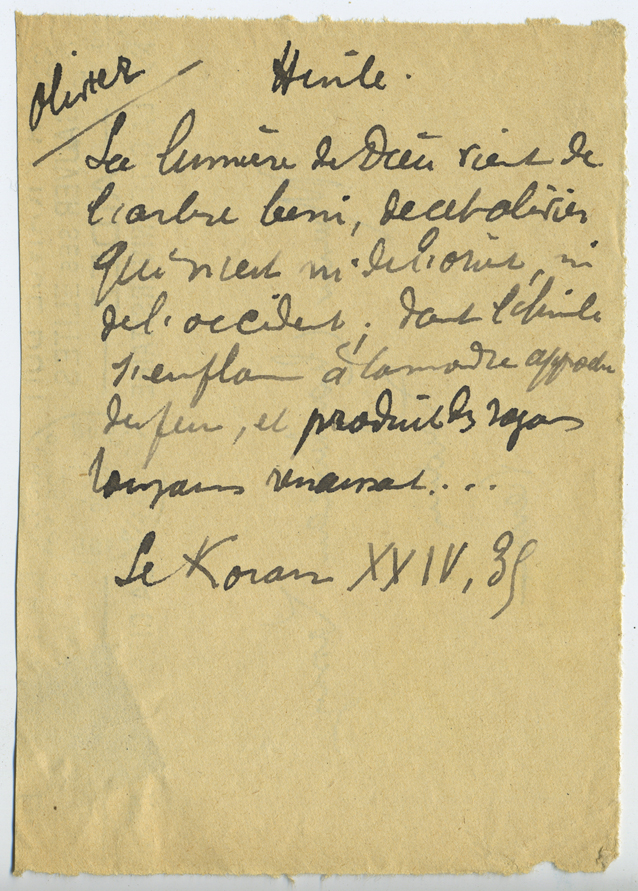 Olivier
Huile.
La lumière de Dieu vient de
l'arbre beni, de cet olivier
qui n'est ni de l'orient, ni
de l'occident; dont l'huile
s'enflam à la moindre approche
du feu, et produit des rayons
toujours renaissant....
Le Koran XXIV, 35